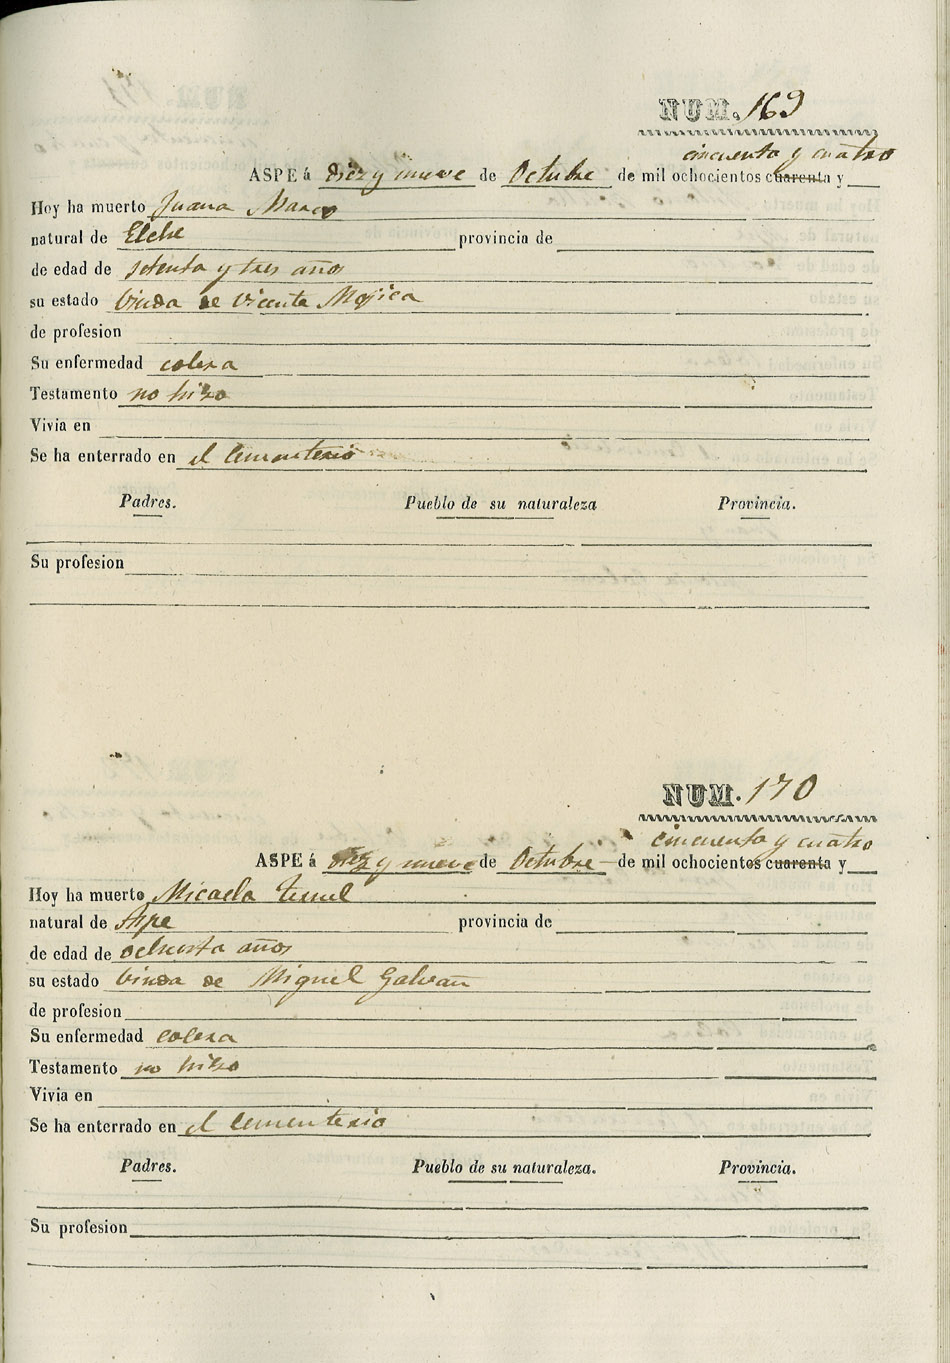 NUM. 169
cincuenta y cuatro
ASPE á diez y nueve de Octubre de mil ochocientos cuarenta y
Hoy ha muerto Juana Marco
natural de Elche provincia de
de edad de setenta y tres años
su estado Viuda de Vicente Mojica
de profesion
Su enfermedad colera
Testamento no hizo
Vivia en
Se ha enterrado en el Cementerio
Padres. Pueblo de su naturaleza Provincia.
Su profesion
NUM. 170
cincuenta y cuatro
ASPE á diez y nueve de Octubre de mil ochocientos cuarenta y
Hoy ha muerto Micaela Teruel
natural de Aspe provincia de
de edad de ochenta años
su estado Viuda de Miguel Galvañ
de profesion
Su enfermedad colera
Testamento no hizo
Vivia en
Se ha enterrado en el Cementerio
Padres. Pueblo de su naturaleza. Provincia.
Su profesion